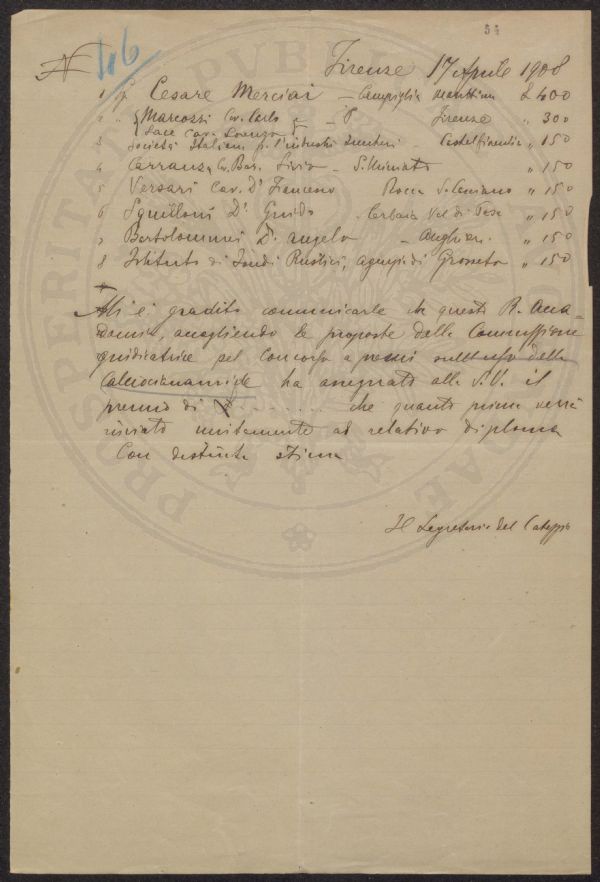 54
N 46
Firenze 17 Aprile 1908
1 Sig. Cesare Merciai – Campiglia Marittima £ 400
2 " Marcozzi Cav. Carlo e – Firenze " 300
Pace Cav.
3 Società Italiana p. l'industri Zuccheri – Castelfiorentino " 150
4 Carranza Cav. Bar. Livio – S. Miniato " 150
5 Versari Cav. Dr. Francesco Rocca S. Casciano " 150
6 Squilloni Dr. Guido – Cerbaia Val di Pesa " 150
7 Bertolommei Dr. Angelo – Anghiari " 150
8 Istituto di Fondi Rustici, Agenzia di Grosseto " 150
Mi è gradito comunicarle che questa R. Acca-
demia, accogliendo le proposte della Commissione
giudicatrice pel Concorso a premi sull'uso della
Calciocianamide ha assegnato alla S.V. il
premio di ......... che quanto prima verrà
inviato unitamente al relativo diploma
Con distinta stima
Il Segretario del